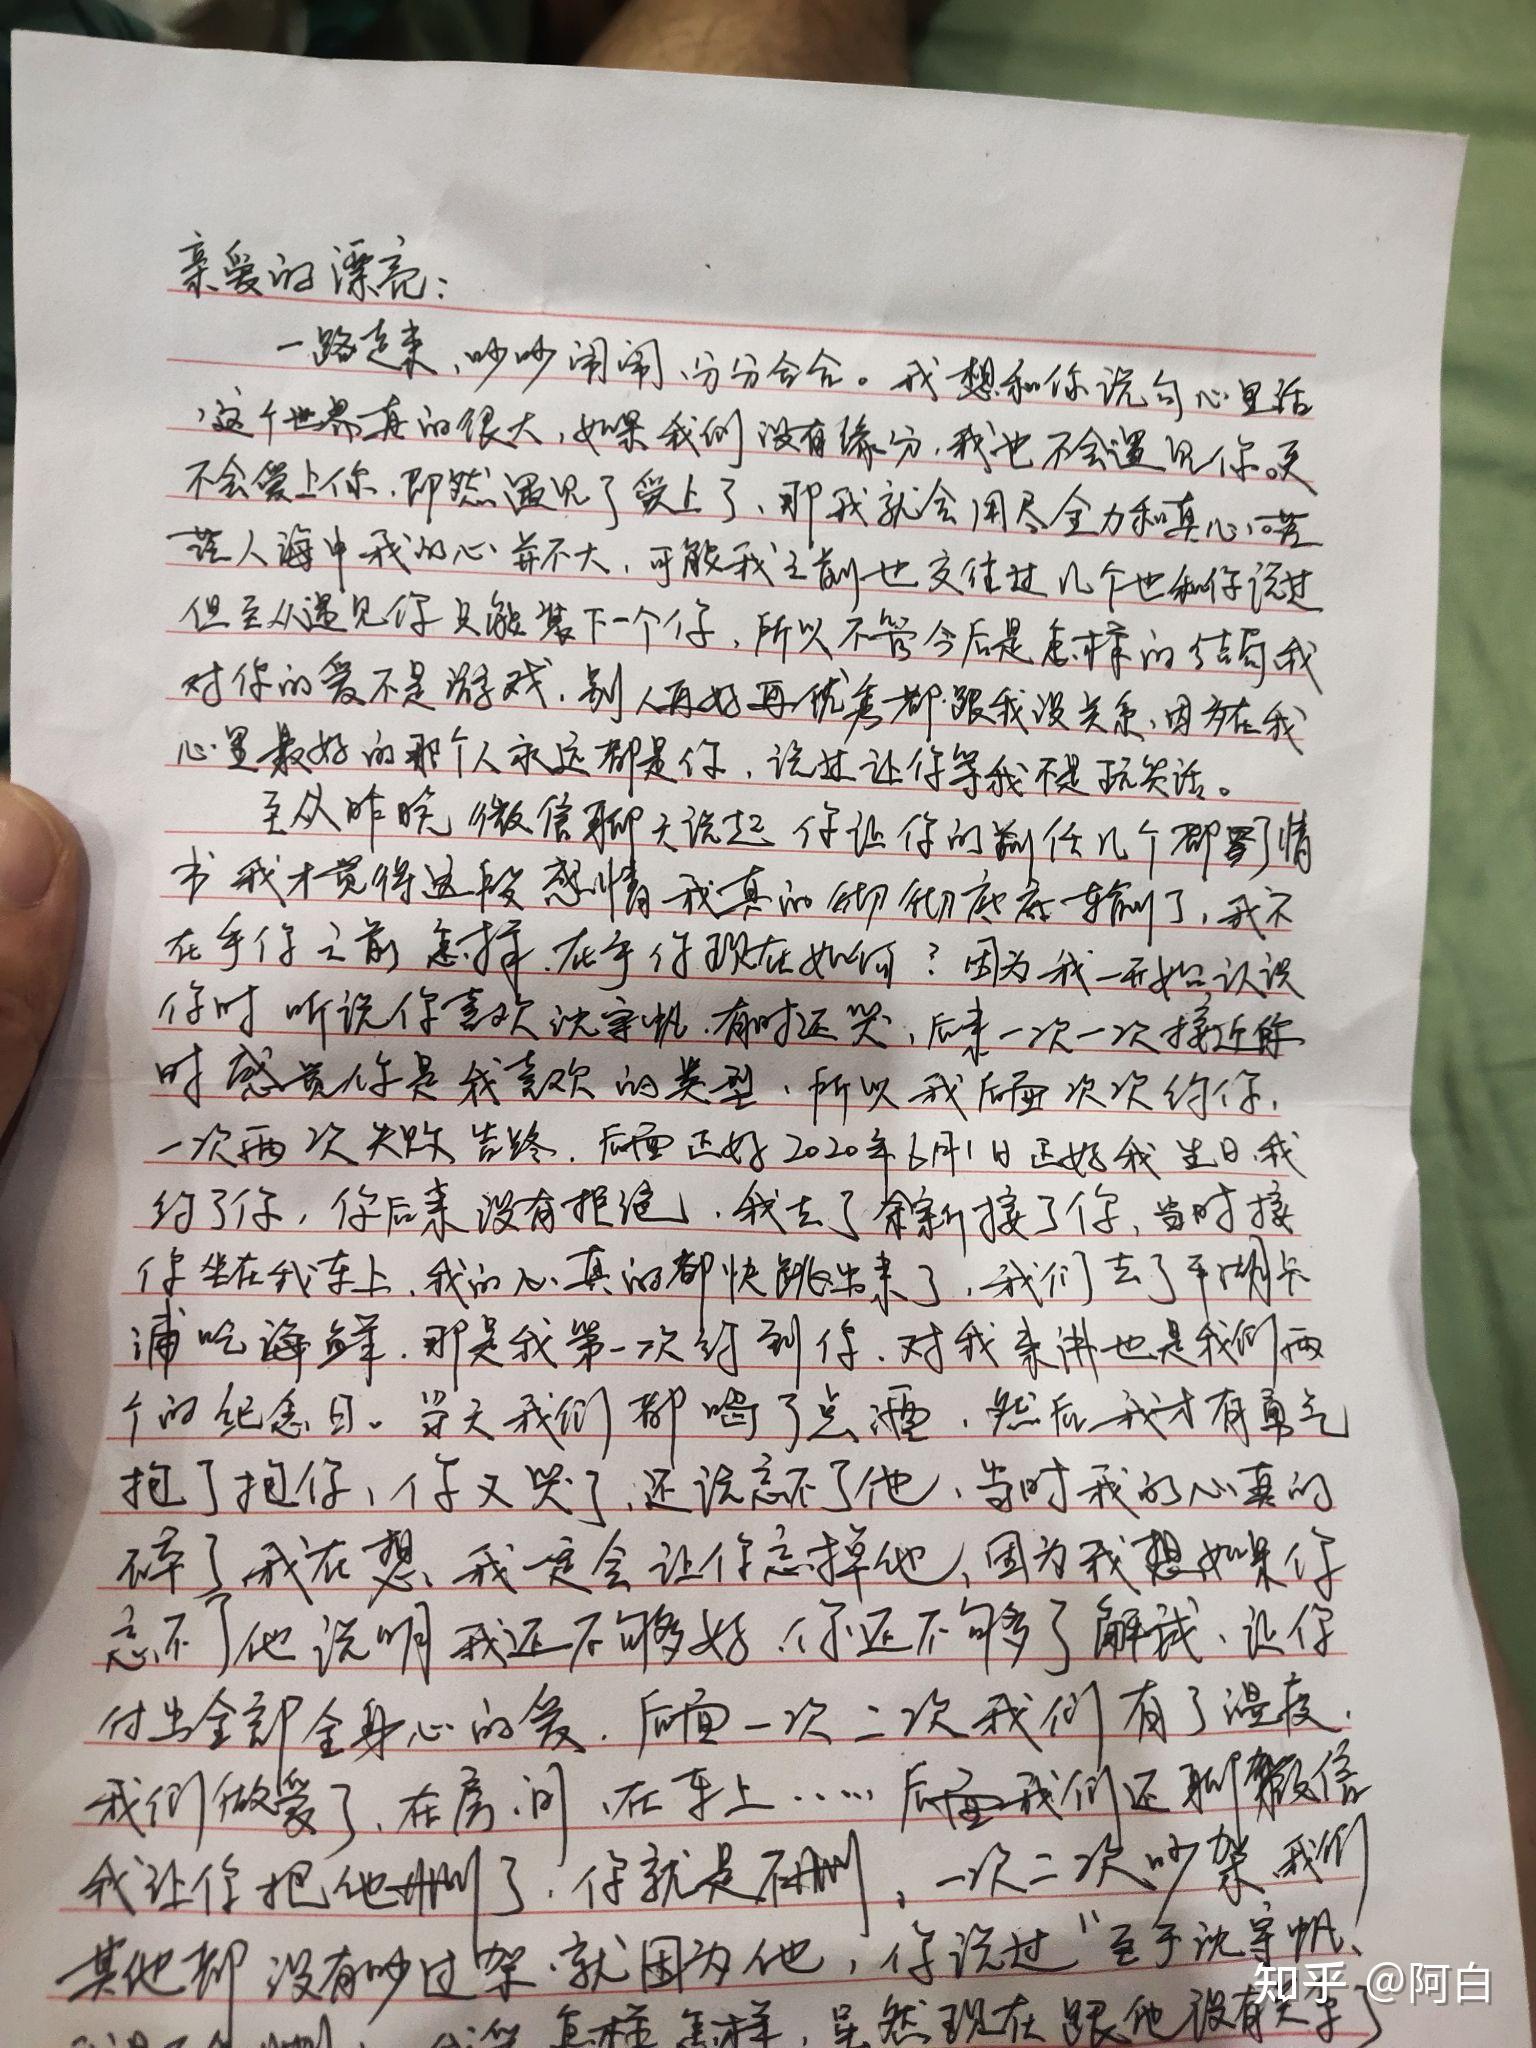 亲爱的漂亮：
一路走来、吵吵闹闹、分分合合。我想和你说句心里话
，这个世界真的很大，如果我们没有缘分，我也不会遇见你。更
不会爱上你，即然遇见了爱上了，那我就会用尽全力和真心。茫
茫人海中我的心并不大，可能我之前也交往过几个也和你说过
但至从遇见你只能装下一个你，所以不管今后是怎样的结局我
对你的爱不是游戏，别人再好再优秀都跟我没关系，因为在我
心里最好的那个人永远都是你，说过让你等我不是玩笑话。
至从昨晚微信聊天说起 你让你的前任几个都写了情
书 我才觉得这段感情我真的彻彻底底输了，我不
在乎你之前怎样，在乎你现在如何？因为我一开始认识
你时 听说你喜欢沈宇帆，有时还哭，后来一次一次接近你
时感觉你是我喜欢的类型，所以我后面次次约你，
一次两次失败告终，后面正好2020年6月1日正好我生日，我
约了你，你后来没有拒绝，我去了余新接了你，当时接
你坐在我车上，我的心真的都快跳出来了，我们去了平湖乍
浦吃海鲜，那是我第一次约到你，对我来讲也是我们两
个的纪念日。当天我们都喝了点酒，然后我才有勇气
抱了抱你，你又哭了，还说忘不了他，当时我的心真的
碎了我在想，我一定会让你忘掉他，因为我想如果你
忘不了他说明我还不够好，你还不够了解我，让你
付出全部全身心的爱，后面一次二次我们有了温度，
我们做爱了，在房间，在车上……后面我们还聊微信
我让你把他删了，你就是不删，一次二次吵架，我们
其他都没有吵过架，就因为他，你说过“至于沈宇帆、
怎样怎样，虽然现在跟他没有关系了
知乎 @阿白